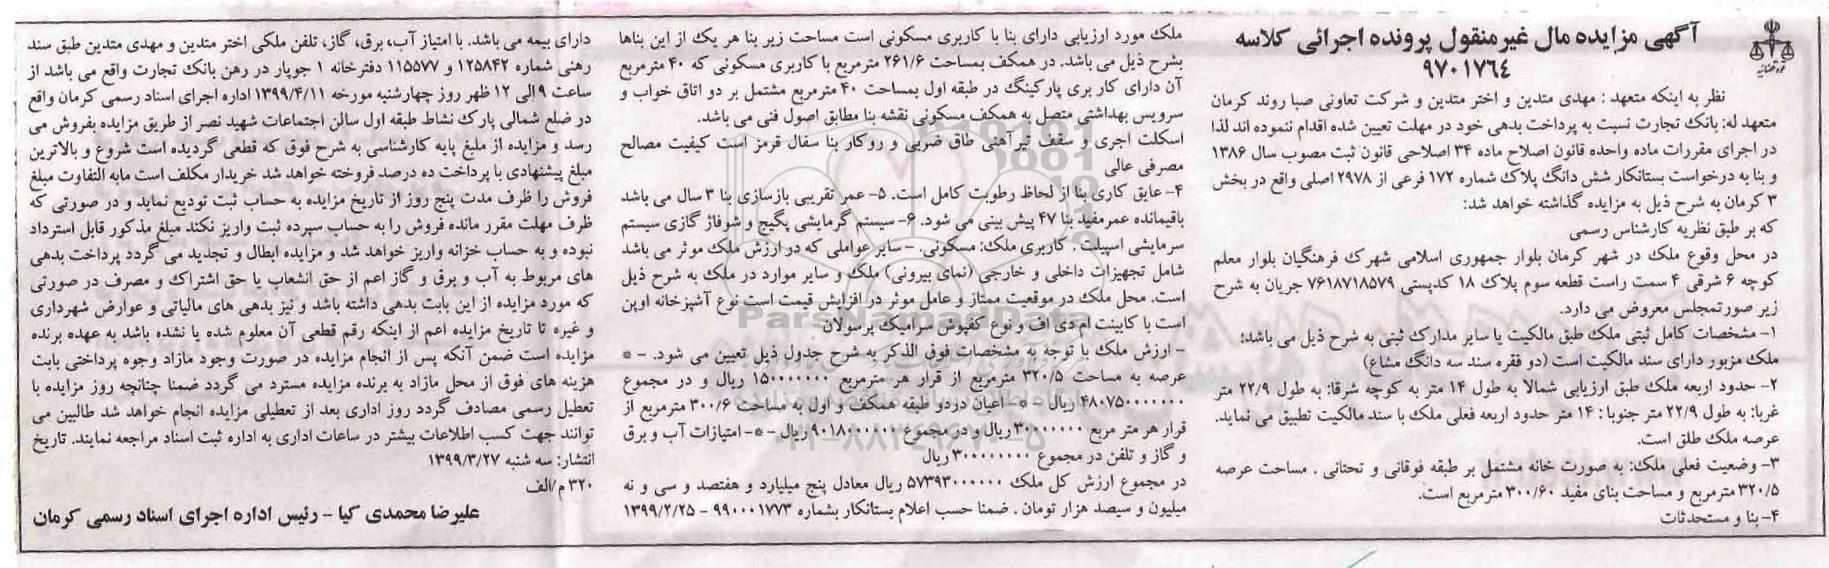 آگهی مزایده مال غیرمنقول پرونده اجرائی کلاسه
۹۷۰۱۷۶۴
نظر به اینکه متعهد : مهدی متدین و اختر متدین و شرکت تعاونی صبا روند کرمان
متعهد له: بانک تجارت نسبت به پرداخت بدهی خود در مهلت تعیین شده اقدام ننموده اند لذا
در اجرای مقررات ماده واحده قانون اصلاح ماده ۳۴ اصلاحی قانون ثبت مصوب سال ۱۳۸۶
و بنا به درخواست بستانکار شش دانگ پلاک شماره ۱۷۲ فرعی از ۲۹۷۸ اصلی واقع در بخش
۳ کرمان به شرح ذیل به مزایده گذاشته خواهد شد:
که بر طبق نظریه کارشناس رسمی
در محل وقوع ملک در شهر کرمان بلوار جمهوری اسلامی شهرک فرهنگیان بلوار معلم
کوچه ۶ شرقی ۴ سمت راست قطعه سوم پلاک ۱۸ کدپستی ۷۶۱۸۷۱۸۵۷۹ جریان به شرح
زیر صورتمجلس معروض می دارد.
۱- مشخصات کامل ثبتی ملک طبق مالکیت یا سایر مدارک ثبتی به شرح ذیل می باشد:
ملک مزبور دارای سند مالکیت است (دو فقره سند سه دانگ مشاع)
۲- حدود اربعه ملک طبق ارزیابی شمالا به طول ۱۴ متر به کوچه شرقا: به طول ۲۲/۹ متر
غربا: به طول ۲۲/۹ متر جنوبا: ۱۴ متر حدود اربعه فعلی ملک با سند مالکیت تطبیق می نماید.
عرصه ملک طلق است.
۳- وضعیت فعلی ملک: به صورت خانه مشتمل بر طبقه فوقانی و تحتانی . مساحت عرصه
۳۲۰/۵ مترمربع و مساحت بنای مفید ۳۰۰/۶۰ مترمربع است.
۴- بنا و مستحدثات
ملک مورد ارزیابی دارای بنا با کاربری مسکونی است مساحت زیر بنا هر یک از این بناها
بشرح ذیل می باشد. در همکف بمساحت ۲۶۱/۶ مترمربع با کاربری مسکونی که ۴۰ مترمربع
آن دارای کار بری پارکینگ در طبقه اول بمساحت ۴۰ مترمربع مشتمل بر دو اتاق خواب و
سرویس بهداشتی متصل به همکف مسکونی نقشه بنا مطابق اصول فنی می باشد.
اسکلت اجری و سقف تیرآهنی طاق ضربی و روکار بنا سفال قرمز است کیفیت مصالح
مصرفی عالی
۴- عایق کاری بنا از لحاظ رطوبت کامل است. ۵- عمر تقریبی بازسازی بنا ۳ سال می باشد
باقیمانده عمرمفید بنا ۴۷ پیش بینی می شود. ۶- سیستم گرمایشی پکیج و شوفاژ گازی سیستم
سرمایشی اسپیلت . کاربری ملک: مسکونی. - سایر عواملی که در ارزش ملک موثر می باشد
شامل تجهیزات داخلی و خارجی (نمای بیرونی) ملک و سایر موارد در ملک به شرح ذیل
است. محل ملک در موقعیت ممتاز و عامل موثر در افزایش قیمت است نوع آشپزخانه اوپن
است با کابینت ام دی اف و نوع کفپوش سرامیک پرسولان
- ارزش ملک با توجه به مشخصات فوق الذکر به شرح جدول ذیل تعیین می شود. - *
عرصه به مساحت ۳۲۰/۵ مترمربع از قرار هر مترمربع ۱۵۰۰۰۰۰۰۰ ریال و در مجموع
۴۸۰۷۵۰۰۰۰۰۰ ریال - * - اعیان دردو طبقه همکف و اول به مساحت ۳۰۰/۶ مترمربع از
قرار هر متر مربع ۳۰۰۰۰۰۰۰ ریال و در مجموع ۹۰۱۸۰۰۰۰۰۰ ریال -*- امتیازات آب و برق
و گاز و تلفن در مجموع ۳۰۰۰۰۰۰۰۰ ریال
در مجموع ارزش کل ملک ۵۷۳۹۳۰۰۰۰۰۰ ریال معادل پنج میلیارد و هفتصد و سی و نه
میلیون و سیصد هزار تومان . ضمنا حسب اعلام بستانکار بشماره ۹۹۰۰۰۱۷۷۳ - ۱۳۹۹/۲/۲۵
دارای بیمه می باشد. با امتیاز آب، برق، گاز، تلفن ملکی اختر متدین و مهدی متدین طبق سند
رهنی شماره ۱۲۵۸۴۲ و ۱۱۵۵۷۷ دفترخانه ۱ جوپار در رهن بانک تجارت واقع می باشد از
ساعت ۹ الی ۱۲ ظهر روز چهارشنبه مورخه ۱۳۹۹/۴/۱۱ اداره اجرای اسناد رسمی کرمان واقع
در ضلع شمالی پارک نشاط طبقه اول سالن اجتماعات شهید نصر از طریق مزایده بفروش می
رسد و مزایده از ملبغ پایه کارشناسی به شرح فوق که قطعی گردیده است شروع و بالاترین
مبلغ پیشنهادی با پرداخت ده درصد فروخته خواهد شد خریدار مکلف است مابه التفاوت مبلغ
فروش را ظرف مدت پنج روز از تاریخ مزایده به حساب ثبت تودیع نماید و در صورتی که
ظرف مهلت مقرر مانده فروش را به حساب سپرده ثبت واریز نکند مبلغ مذکور قابل استرداد
نبوده و به حساب خزانه واریز خواهد شد و مزایده ابطال و تجدید می گردد پرداخت بدهی
های مربوط به آب و برق و گاز اعم از حق انشعاب یا حق اشتراک و مصرف در صورتی
که مورد مزایده از این بابت بدهی داشته باشد و نیز بدهی های مالیاتی و عوارض شهرداری
و غیره تا تاریخ مزایده اعم از اینکه رقم قطعی آن معلوم شده یا نشده باشد به عهده برنده
مزایده است ضمن آنکه پس از انجام مزایده در صورت وجود مازاد وجوه پرداختی بابت
هزینه های فوق از محل مازاد به برنده مزایده مسترد می گردد ضمنا چنانچه روز مزایده با
تعطیل رسمی مصادف گردد روز اداری بعد از تعطیلی مزایده انجام خواهد شد طالبین می
توانند جهت کسب اطلاعات بیشتر در ساعات اداری به اداره ثبت اسناد مراجعه نمایند. تاریخ
انتشار: سه شنبه ۱۳۹۹/۳/۲۷
۳۲۰ م/الف
علیرضا محمدی کیا - رئیس اداره اجرای اسناد رسمی کرمان
ParsNamadData
۰۲۱-۸۸۳۴۹۶۷۰-۵